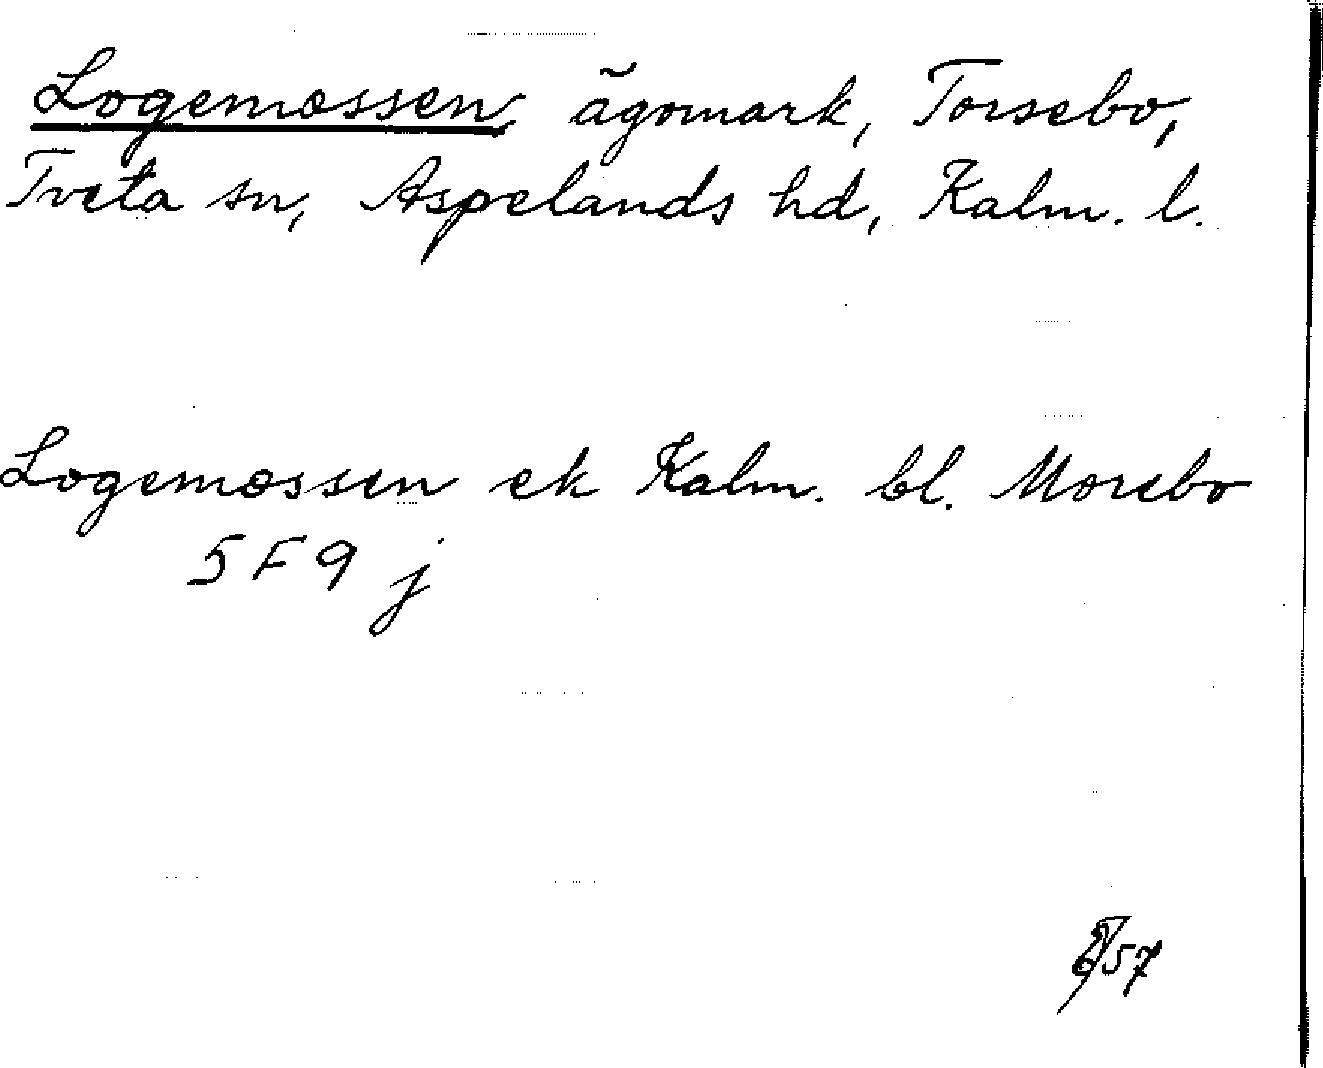 Logemossen, ägomark, Torsebo,
Tveta sn, Aspelands hd, Kalm. l.
Logemossen ek Kalm. bl. Morebo
5 F 9 j